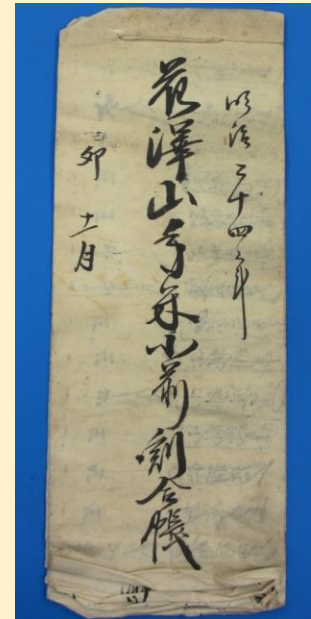 明治二十四年
花澤山手米小前割合帳
卯 十一月